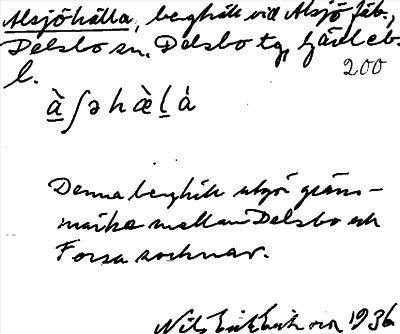 Alsjöhälla, berghäll vid Alsjö fäb.,
Delsbo sn, Delsbo tg, Gävlebs
l.
200
à ʃ ə h æ̀ l̠ á
Denna berghäll utgör gräns-
märke mellan Delsbo och
Forsa socknar.
Nils 1936